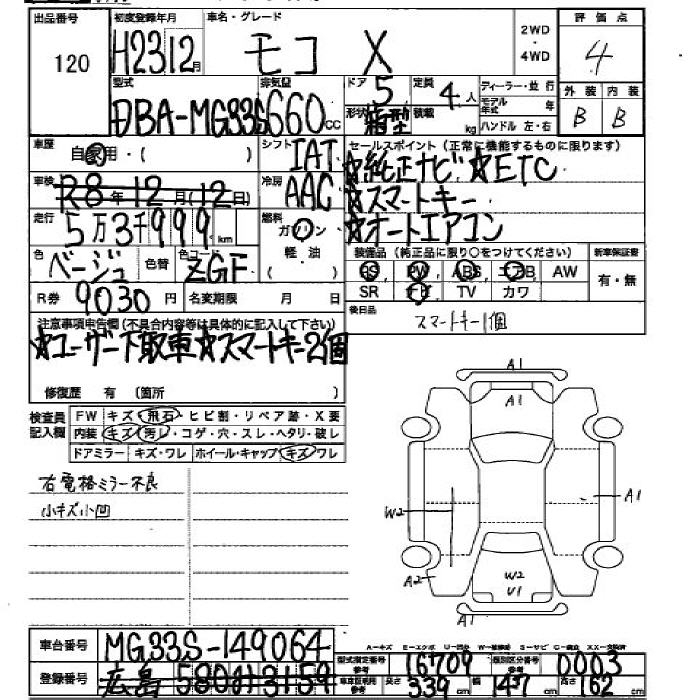 出品番号 初度登録年月 車名・グレード 評価点
120 H23 12月 モコ X 2WD・4WD 4
型式 排気量 ドア 5 定員 4人 ディーラー・並行 外装 内装
DBA-MG33S 660cc 形状 箱型 積載 kg モデル年式 年 B B
ハンドル 左・右
車歴 自家用・( ) シフト IAT セールスポイント (正常に機能するものに限ります)
☆純正ナビ ☆ETC
車検 R8年12月(12日) 冷房 AAC ☆スマートキー
走行 5万3千999km 燃料 ガソリン ☆オートエアコン
色 ベージュ 色替 色コード ZGF 軽・油 ( ) 装備品 (純正品に限り○をつけてください) 新車保証書
PS, PW, ABS, エアB, AW 有・無
R券 9030円 名変期限 月 日 SR ナビ TV カワ
注意事項申告欄(不具合内容等は具体的に記入して下さい) 後日品 スマートキー1個
☆ユーザー下取車☆スマートキー2個
修復歴 有 (箇所 )
検査員記入欄 FW キズ・飛石・ヒビ割・リペア跡・X要
内装 キズ・汚レ・コゲ・穴・スレ・ヘタリ・破レ
ドアミラー キズ・ワレ ホイール・キャップ キズ・ワレ
右電格ミラー不良
小キズ小凹
A1
A1
A1
W2
A2
W2
U1
A1
車台番号 MG33S-149064
A-キズ E-エクボ U-凹み W-補修跡 S-サビ C-腐食 XX-交換済
型式指定番号 参考 16709 類別区分番号 参考 0003
登録番号 広島 580 3159 車庫証明用 参考 長さ 339cm 幅 147cm 高さ 162cm